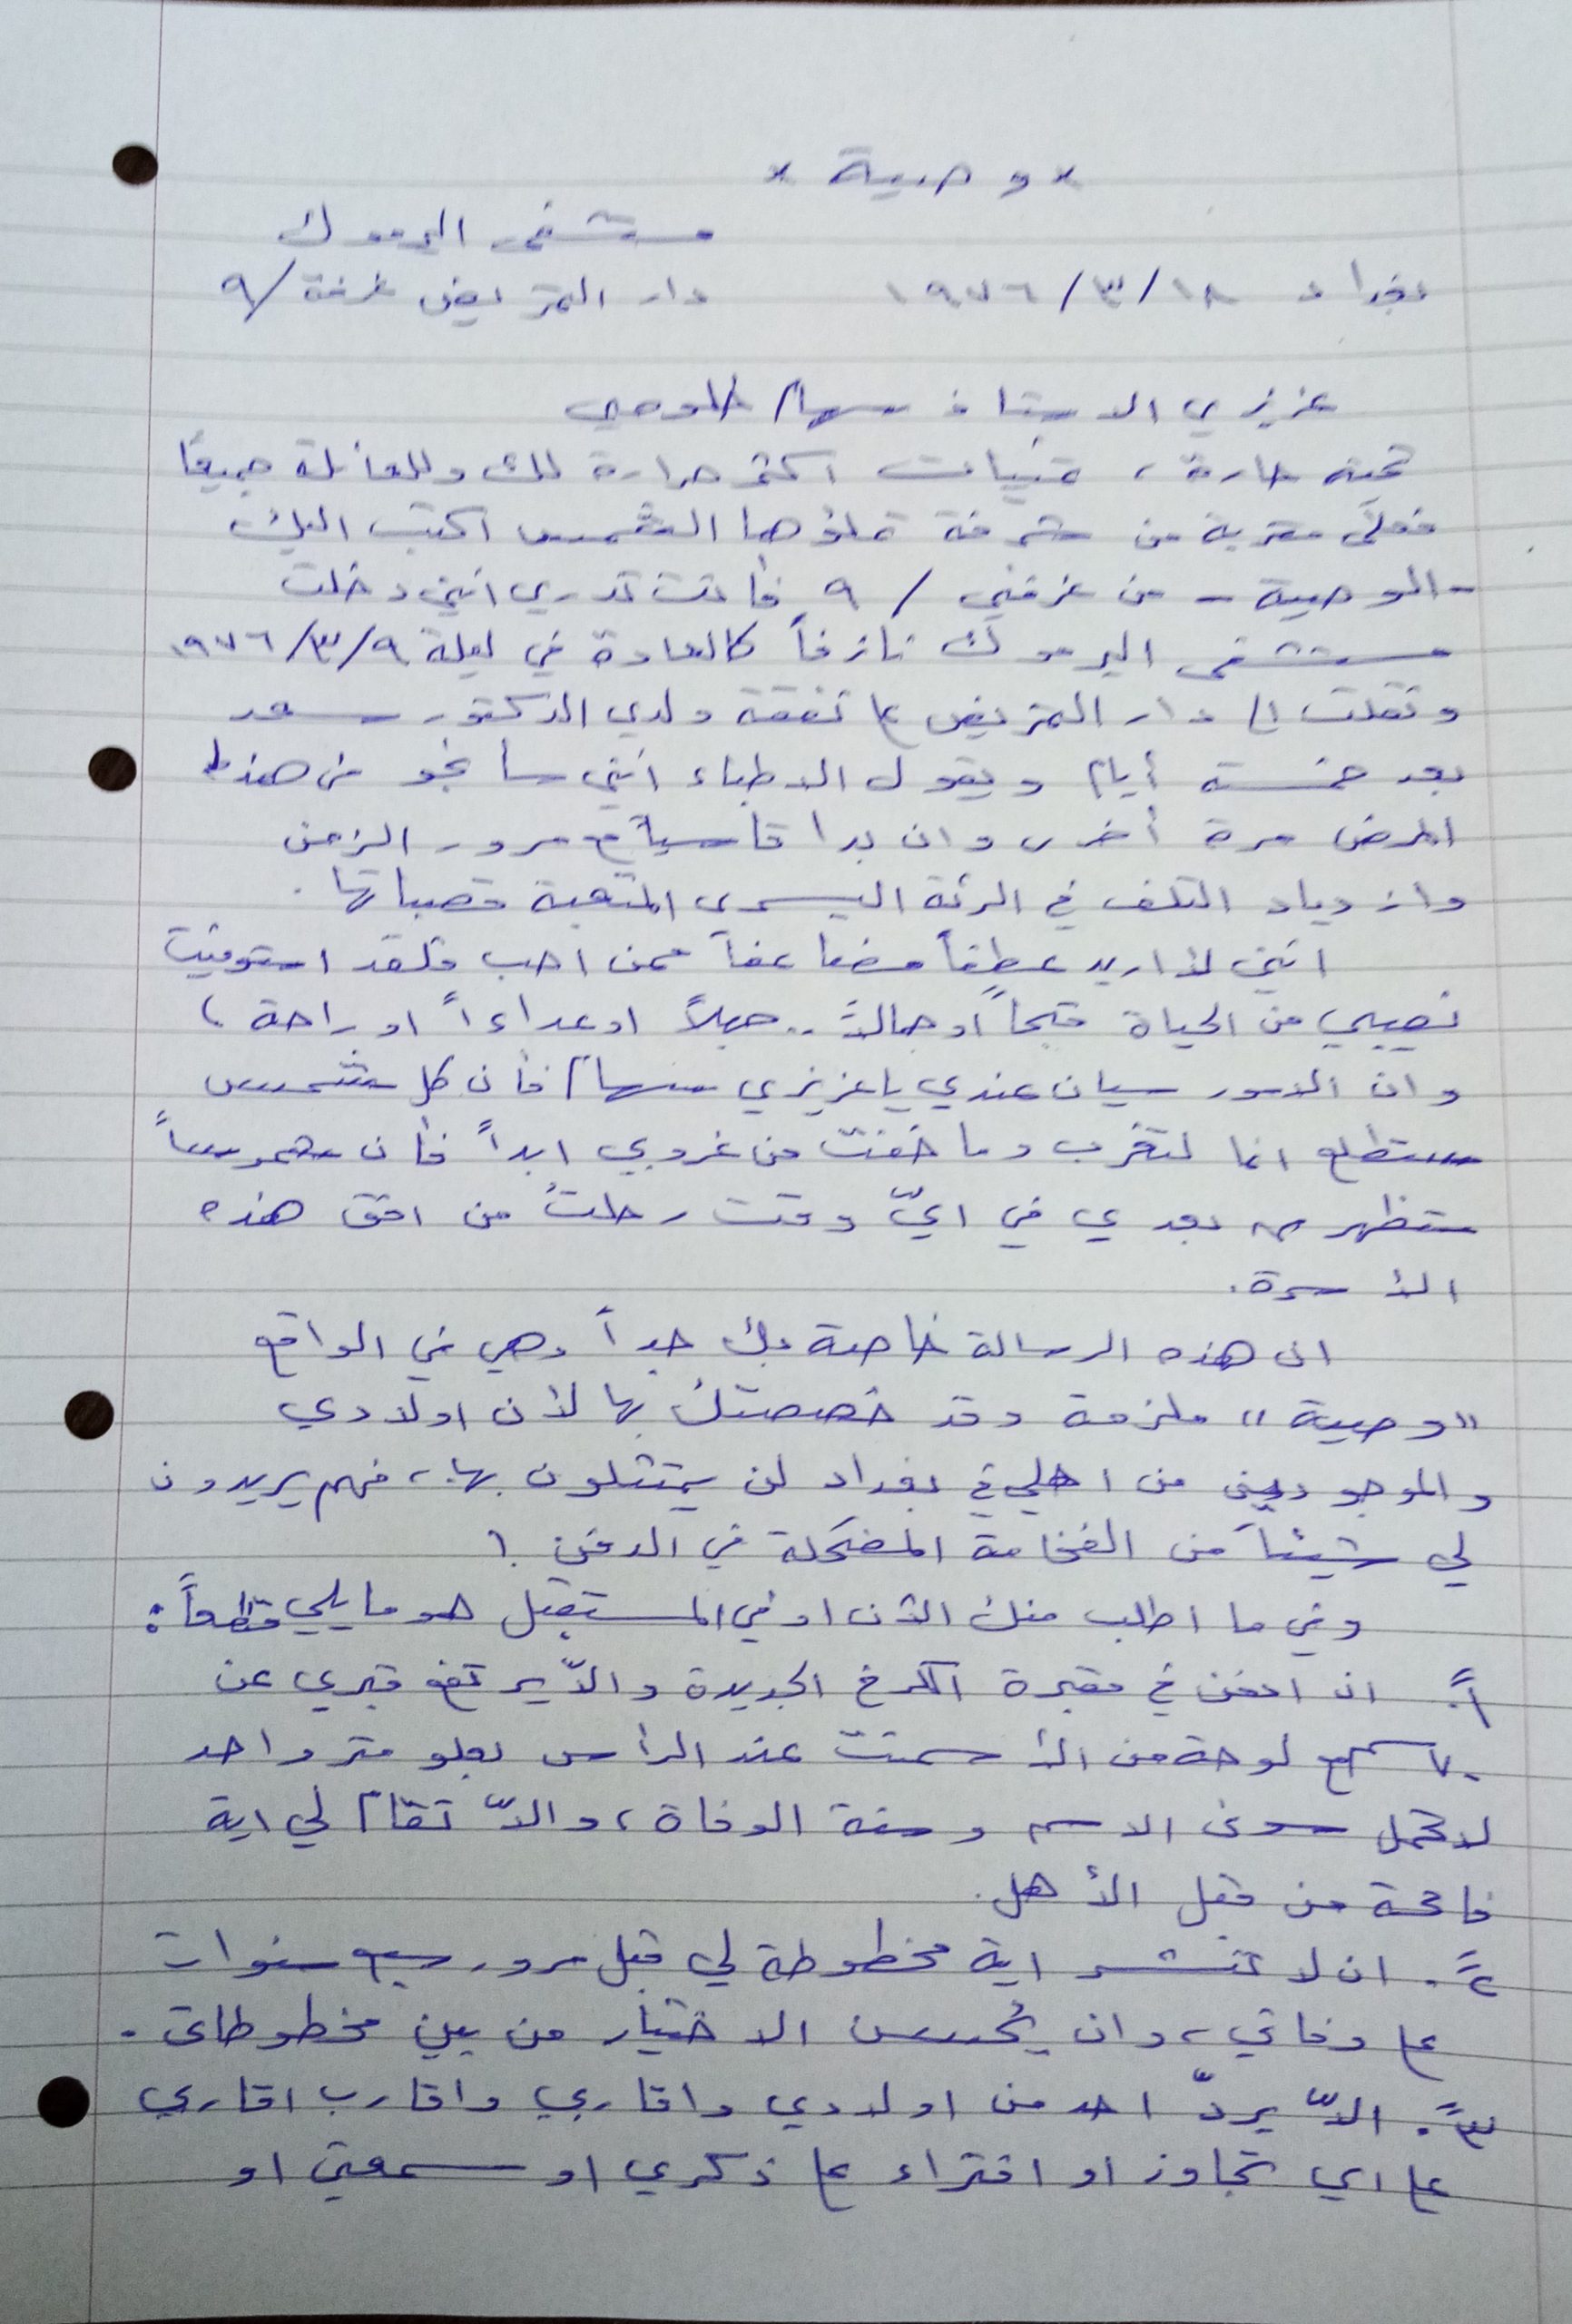 * وصية *
مستشفى اليرموك
بغداد ١٨/٣/١٩٧٦ دار التمريض غرفة/٩
عزيزي الاستاذ سهام
تحية حارة، تمنيات اكثر حرارة لك وللعائلة جميعاً
فعلى مقربة من شرفة تملؤها الشمس اكتب اليك
- الوصية - من غرفتي / ٩ فأنت تدري انني دخلت
مستشفى اليرموك نازفاً كالعادة في ليلة ٩/٣/١٩٧٦
ونقلت الى دار التمريض على نفقة ولدي الدكتور سعد
بعد خمسة أيام ويقول الاطباء انني سأنجو من هذا
المرض مرة أخرى وان بدا قاسياً مع مرور الزمن
وازدياد التلف في الرئة اليسرى المتعبة قصباتها.
انني لا اريد عطفاً مضاعفاً ممن احب فلقد استوفيت
نصيبي من الحياة قبحاً أو جمالاً.. جهلاً او عداءاً او راحة،
وان الامور سيان عندي يا عزيزي سهام فأن كل شمس
ستطلع انما لتغرب وما خفت من غروبي ابداً فأن شموساً
ستظهر من بعدي في ايّ وقت رحلتُ من افق هذه
الأسرة.
ان هذه الرسالة خاصة بك جداً وهي في الواقع
"وصية" ملزمة وقد خصصتك بها لأن اولادي
والموجودين من اهلي في بغداد لن يمتثلون بها، فهم يريدون
لي شيئاً من الفخامة المضحكة في الدفن!
وفي ما اطلب منك الآن او في المستقبل هو ما يلي قطعاً:
١ً. ان ادفن في مقبرة الكرخ الجديدة والاّ يرتفع قبري عن
٧٠ سم مع لوحة من الأسمنت عند الرأس بعلو متر واحد
لا تحمل سوى الاسم وسنة الوفاة، والاّ تقام لي اية
فاتحة من قبل الأهل.
٢ً. ان لا تنشر اية مخطوطة لي قبل مرور سبع سنوات
على وفاتي، وان يُحسن الاختيار من بين مخطوطاتي.
٣ً. الاّ يردّ احد من اولادي واقاربي واقارب اقاربي
على اي تجاوز او افتراء على ذكري او سمعتي او